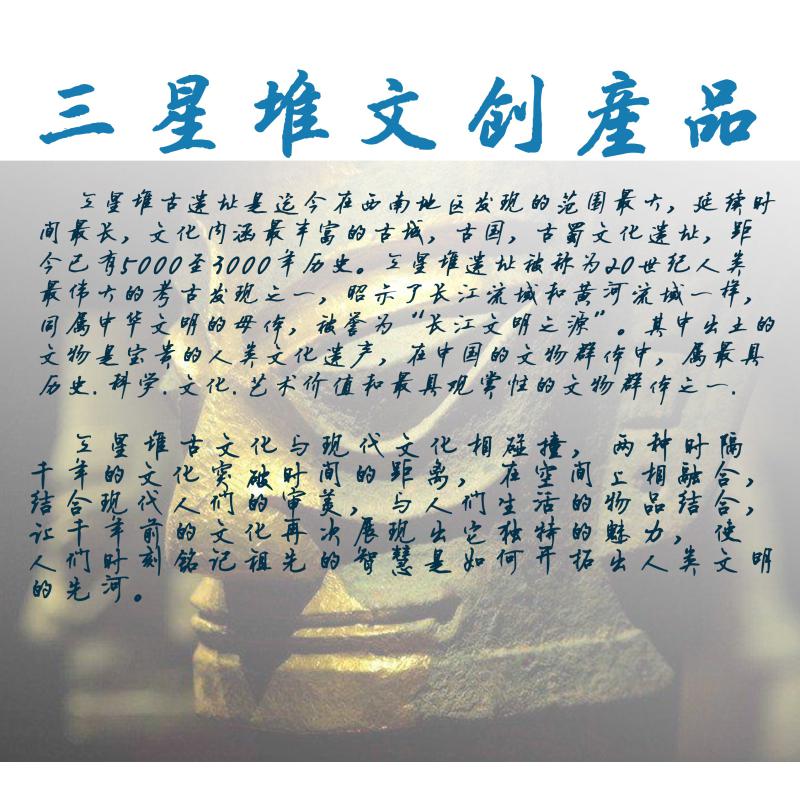 三星堆文创産品
三星堆古遗址是迄今在西南地区发现的范围最大，延续时
间最长，文化内涵最丰富的古城，古国，古蜀文化遗址，距
今已有5000至3000年历史。三星堆遗址被称为20世纪人类
最伟大的考古发现之一，昭示了长江流域和黄河流域一样，
同属中华文明的母体，被誉为“长江文明之源”。其中出土的
文物是宝贵的人类文化遗产，在中国的文物群体中，属最具
历史.科学.文化.艺术价值和最具观赏性的文物群体之一.
三星堆古文化与现代文化相碰撞，两种时隔
千年的文化突破时间的距离，在空间上相融合，
结合现代人们的审美，与人们生活的物品结合，
让千年前的文化再次展现出它独特的魅力，使
人们时刻铭记祖先的智慧是如何开拓出人类文明
的先河。